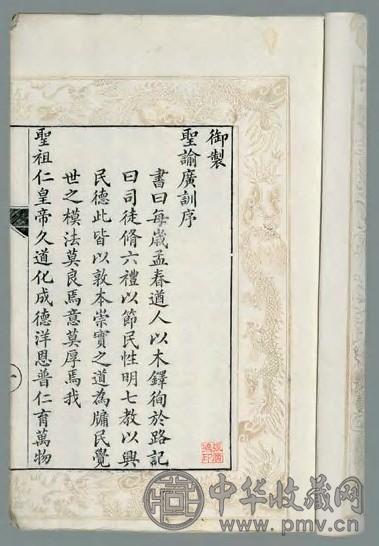 御製
聖諭廣訓序
書曰每歲孟春遒人以木鐸徇於路記
曰司徒脩六禮以節民性明七教以興
民德此皆以敦本崇實之道為牖民覺
世之模法莫良焉意莫厚焉我
聖祖仁皇帝久道化成德洋恩普仁育萬物
一
中华收藏网
www.pmv.cn